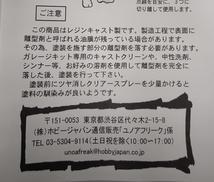 切り離して使用します。
ご注意
この商品はレジンキャスト製です。製造工程で表面に
離型剤と呼ばれる油膜が残っている場合があります。
その為、塗装を施す部分の離型剤を落す必要があります。
ガレージキット専用のキャストクリーンや、中性洗剤、
シンナー等、お好みの溶剤を使用して離型剤を完全に
落して
塗装前にツヤ消しクリアースプレーを少量かけると
塗料の馴染みが良いようです。
〒151-0053 東京都渋谷区代々木2-15-8
(株)ホビージャパン通信販売「ユノアフリーク」係
TEL 03-5304-9114(土日祝を除く10:00〜17:00)
unoafreak@hobbyjapan.co.jp